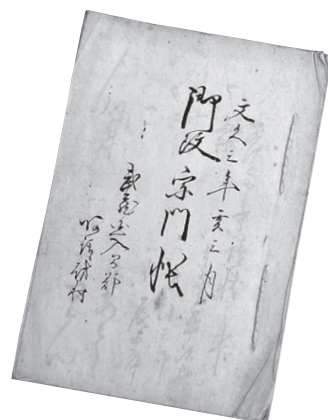 文久三年亥三月
御改宗門帳
武蔵国入間郡
阿諏訪村